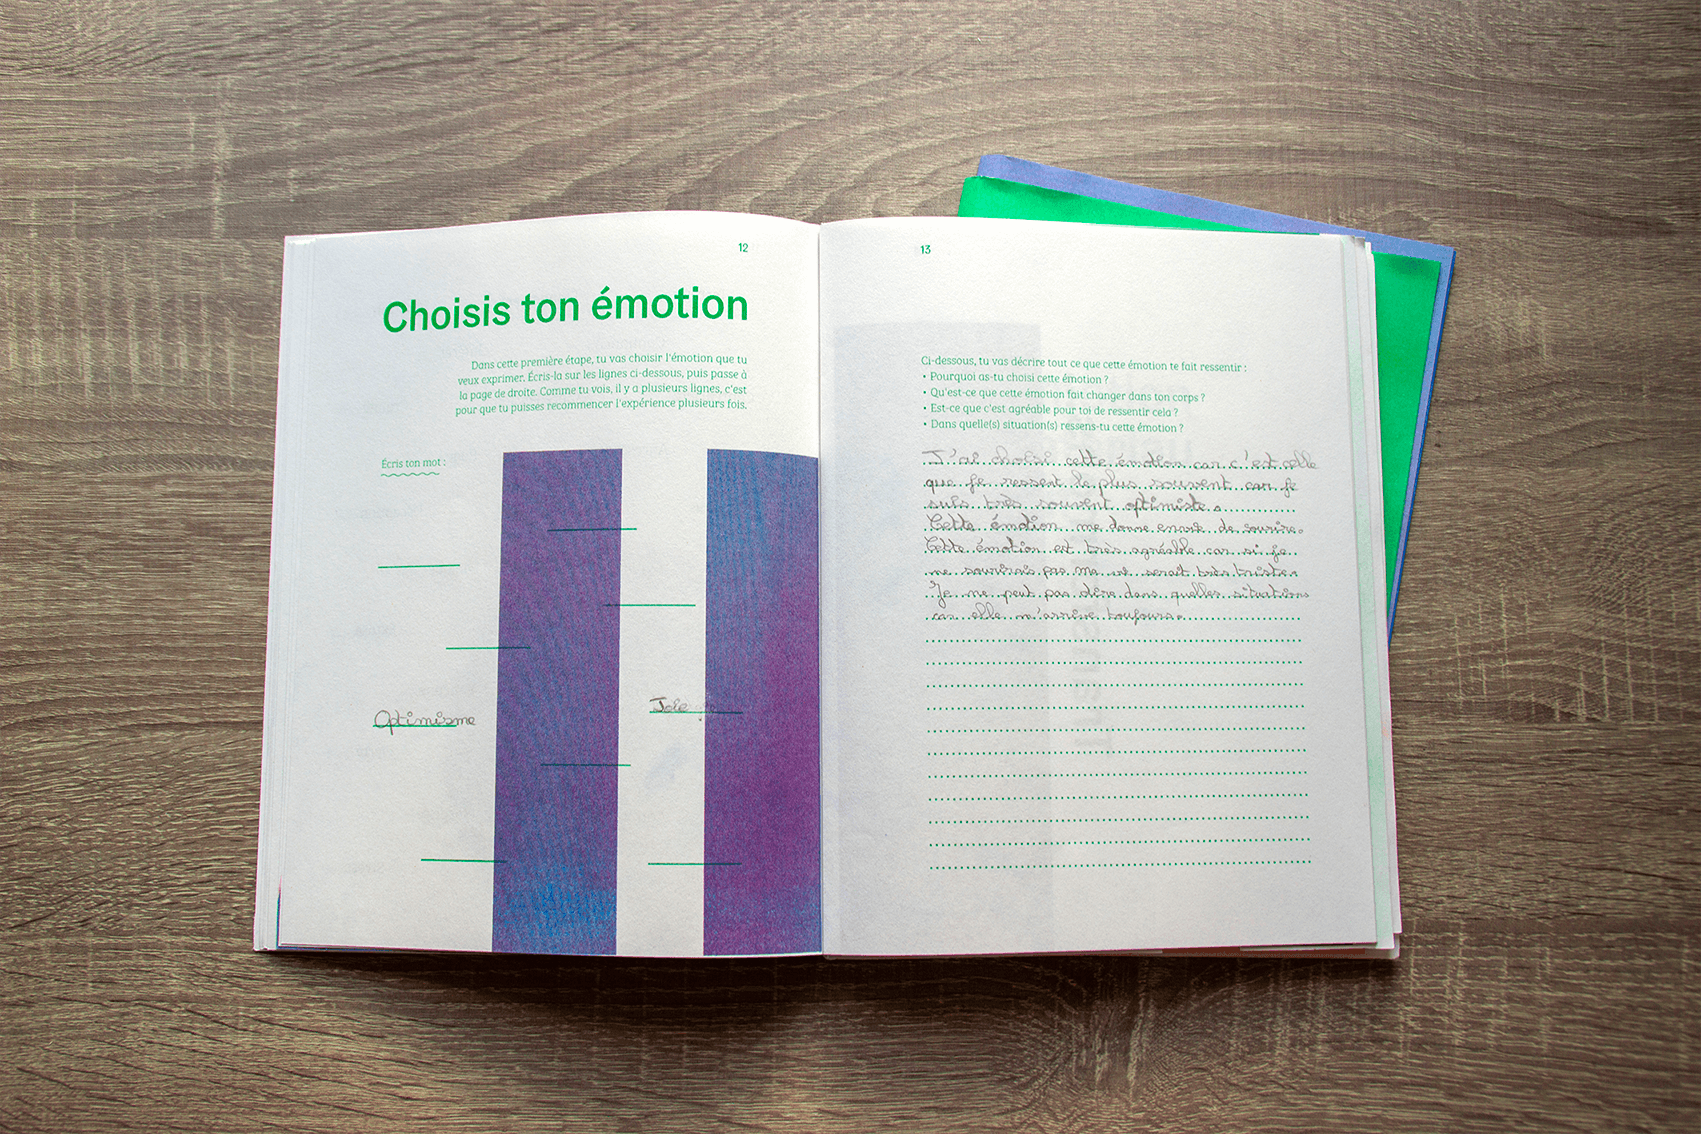 12
Choisis ton émotion
Dans cette première étape, tu vas choisir l'émotion que tu
veux exprimer. Écris-la sur les lignes ci-dessous, puis passe à
la page de droite. Comme tu vois, il y a plusieurs lignes, c'est
pour que tu puisses recommencer l'expérience plusieurs fois.
Écris ton mot :
Optimisme
Joie
13
Ci-dessous, tu vas décrire tout ce que cette émotion te fait ressentir :
• Pourquoi as-tu choisi cette émotion ?
• Qu'est-ce que cette émotion fait changer dans ton corps ?
• Est-ce que c'est agréable pour toi de ressentir cela ?
• Dans quelle(s) situation(s) ressens-tu cette émotion ?
J'ai choisi cette émotion car c'est celle
que je ressent le plus souvent car je
suis très souvent optimiste.
Cette émotion me donne envie de sourire.
Cette émotion est très agréable car si je
ne sourirais pas ma vie serait très triste.
Je ne peut pas dire dans quelles situations
car elle m'arrive toujours.